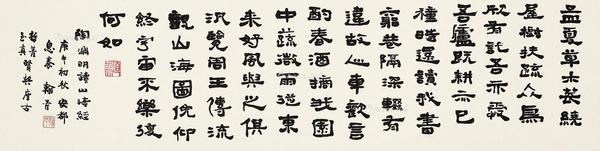 孟夏草木長繞
屋樹扶疏众鳥
欣有託吾亦愛
吾廬既耕亦已
種時還讀我書
窮巷隔深轍頗
迴故人車歡言
酌春酒摘我園
中蔬微雨從東
來好風與之俱
汎覽周王傳流
觀山海圖俛仰
終宇宙不樂復
何如
陶淵明讀山海經
庚午初秋